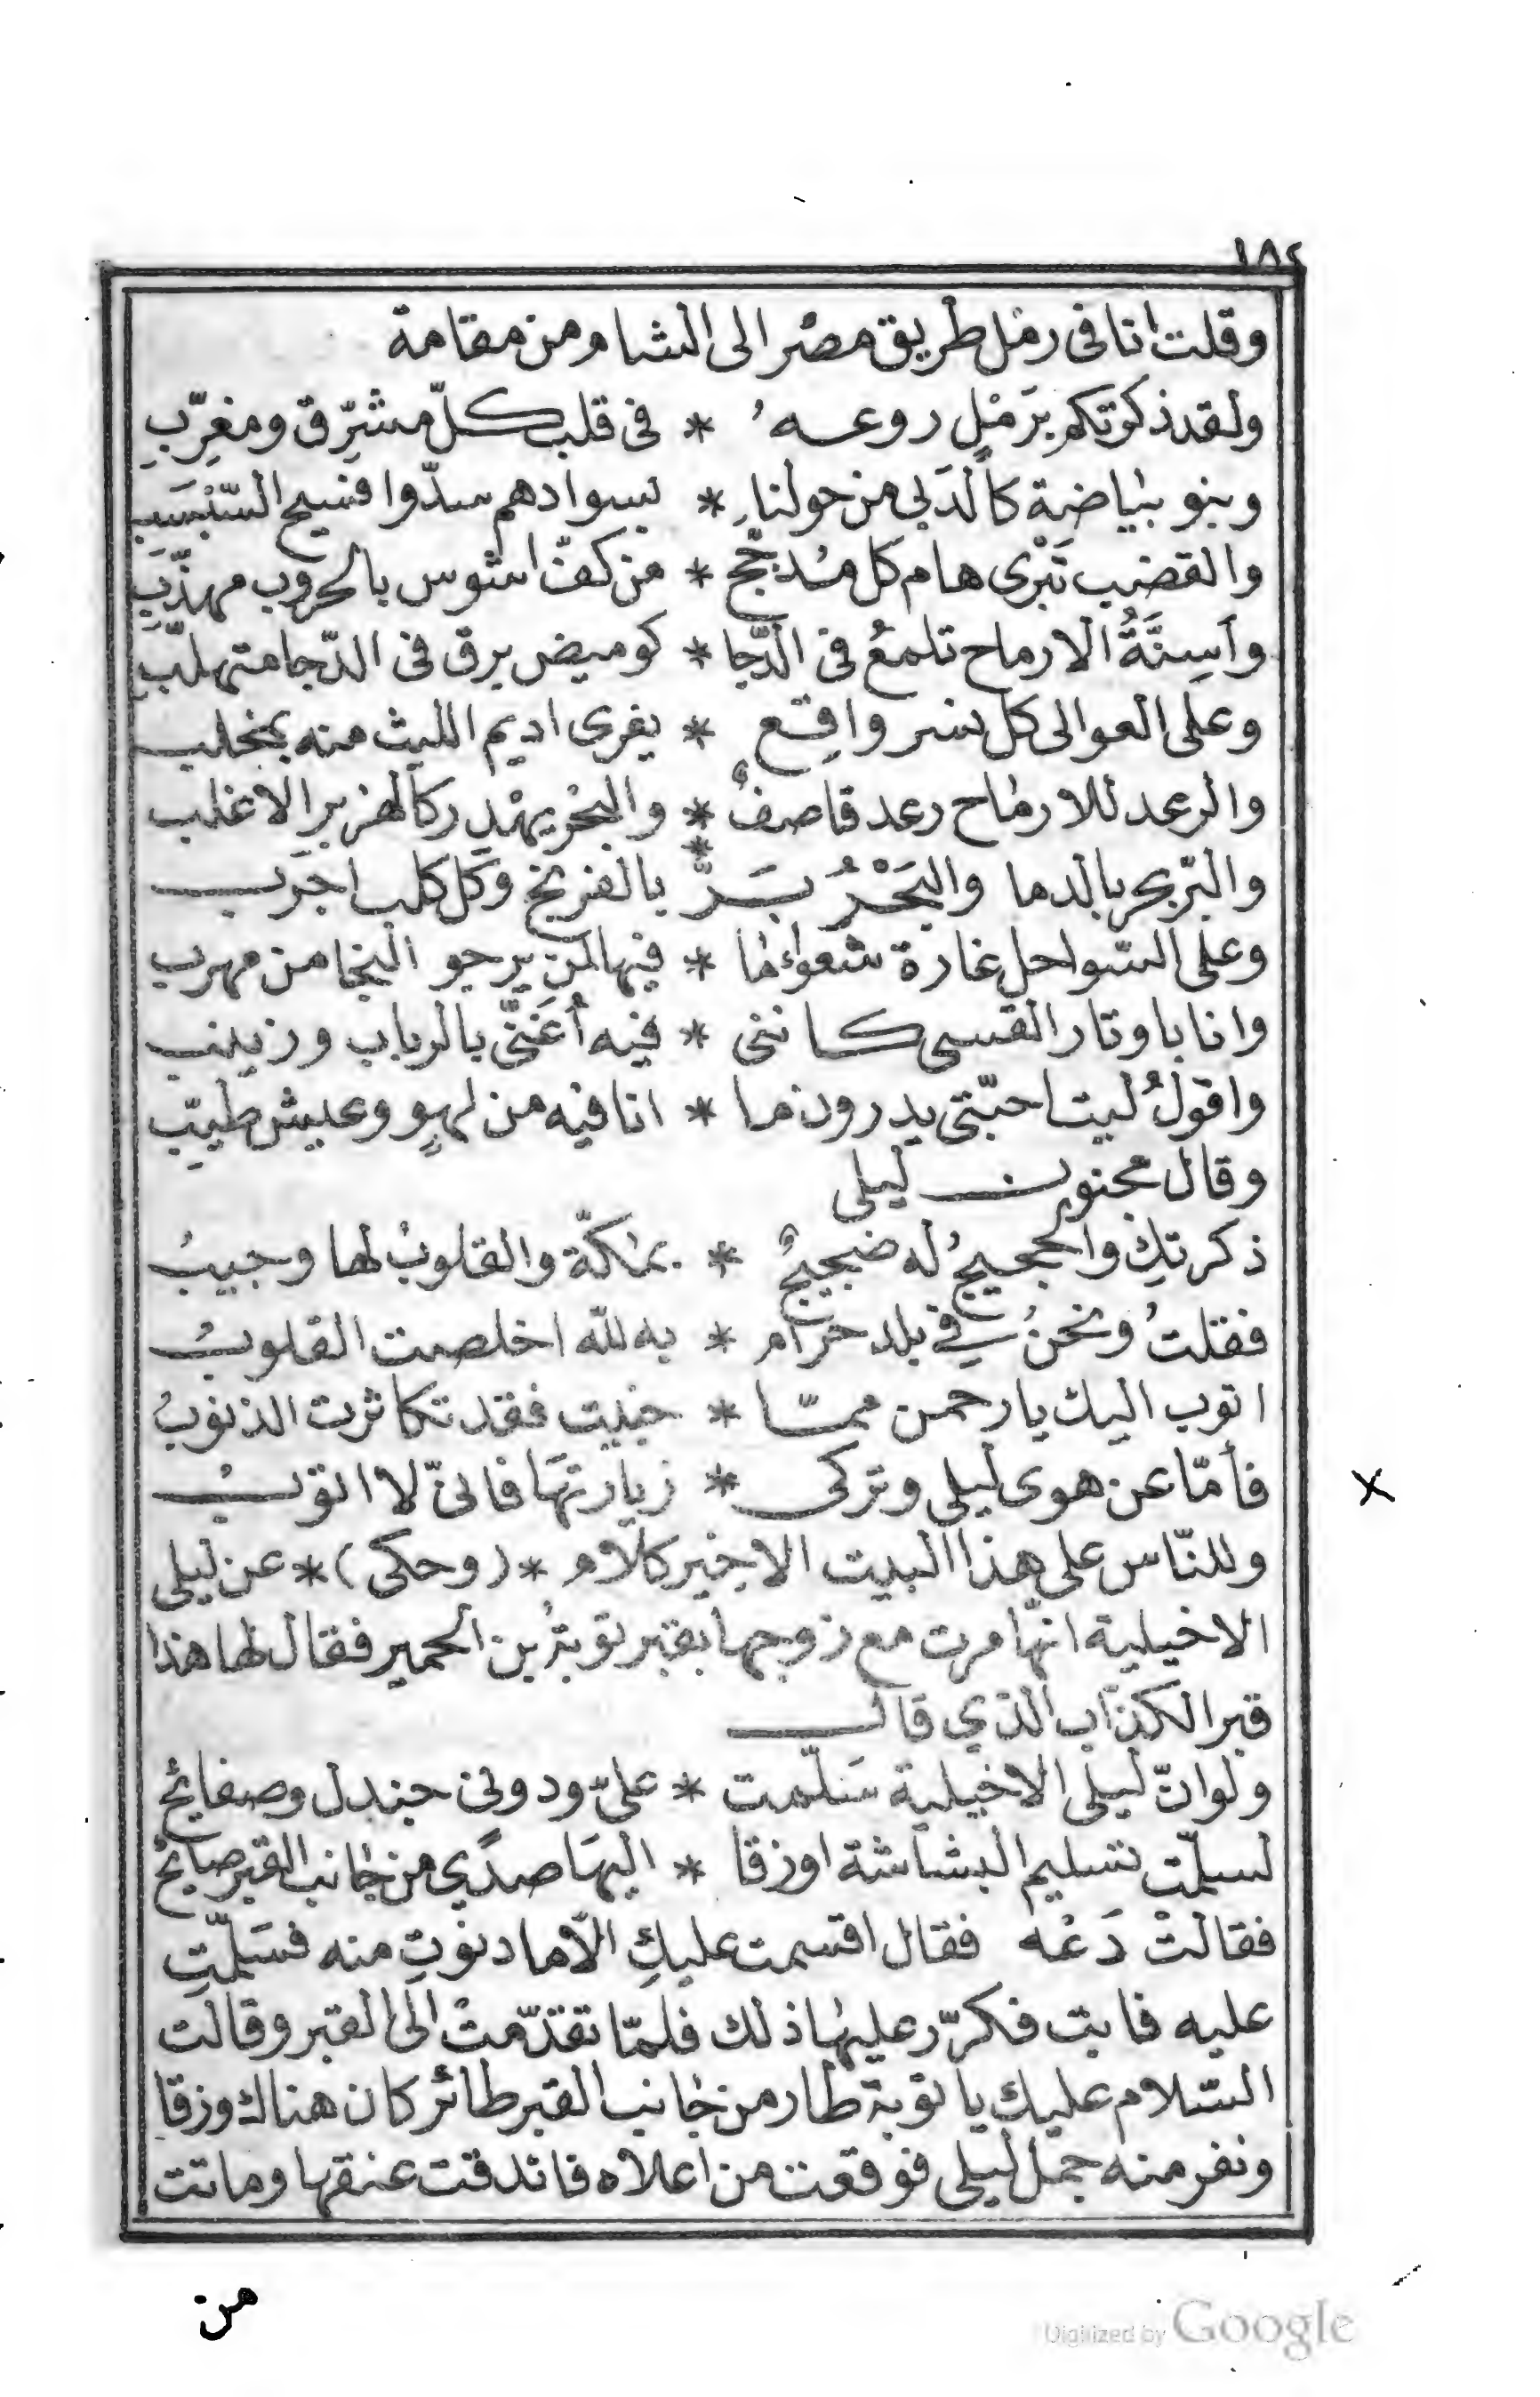 ١٨٢
وقلت انا فى رمل طريق مصر الى الشام من مقامة
ولقد ذكرتكم برَمْلٍ روعه * فى قلب كلّ مشرِّق ومغرِّبِ
وبنو بياضة كالدَبى من حولنا * بسوادهم سدّوا فسيح السَّبْسَب
والقضب تَبْرى هام كل مُدجَّج * من كفّ اشوس بالحروب مهذَّبِ
وأسِنَّةُ الارماح تلمعُ فى الدّجا * كوميض برق فى الدّجا متهلّبِ
وعلى العوالى كل نسر واقِع * يفرى اديم الليث منه بمخلب
والرعد للارماح رعد قاصفٌ * والبحْر يهْدِر كالهزبر الاغلب
والبّر بحر بالدما والبَحْرُ بَرٌّ * بالفرنج وكل كلب اجرَب
وعلى السّواحل غارة شعواء ما * فيها لمن يرجو النجا من مهرب
وانا باوتار القسى كاننى * فيه أُغَنّى بالرباب وزينب
واقولُ ليت احبّتى يدرون ما * انا فيه من لهوٍ وعيش طيّبِ
وقال مجنون ليلى
ذكرتكِ والحجيجُ له ضجيجٌ * بمكّة والقلوبُ لها وجيبُ
فقلتُ ونحنُ في بلد حرام * به لله اخلصت القلوبُ
اتوب اليك يا رحمن ممّا * جنيت فقد تكاثرت الذنوبُ
فأمّا عن هوى ليلى وتركى * زيارتهَا فانىّ لا اتوبُ
وللنّاس على هذا البيت الاخير كلام * (وحكى) * عن ليلى
الاخيلية انهّا مرت مع زوجها بقبر توبة بن الحمير فقال لها هذا
قبر الكذاب الذي قال
ولو انّ ليلى الاخيلية سَلّمت * علىّ ودونى جندل وصفائح
لسلمّت تسليم البشاشة او زقا * اليهَا صدًي من جانب القبر صائحُ
فقالتْ دَعْه فقال اقسمت عليكِ الّا ما دنوْتِ منه فسَلّمتِ
عليه فابت فكرّر عليها ذلك فلمّا تقدّمتْ الى القبر وقالت
السّلام عليك يا توبة طار من جانب القبر طائر كان هناك وزقا
ونفر منه جمل ليلى فوقعت من اعلاه فاندقت عنقها وماتت
من
Digitized by Google